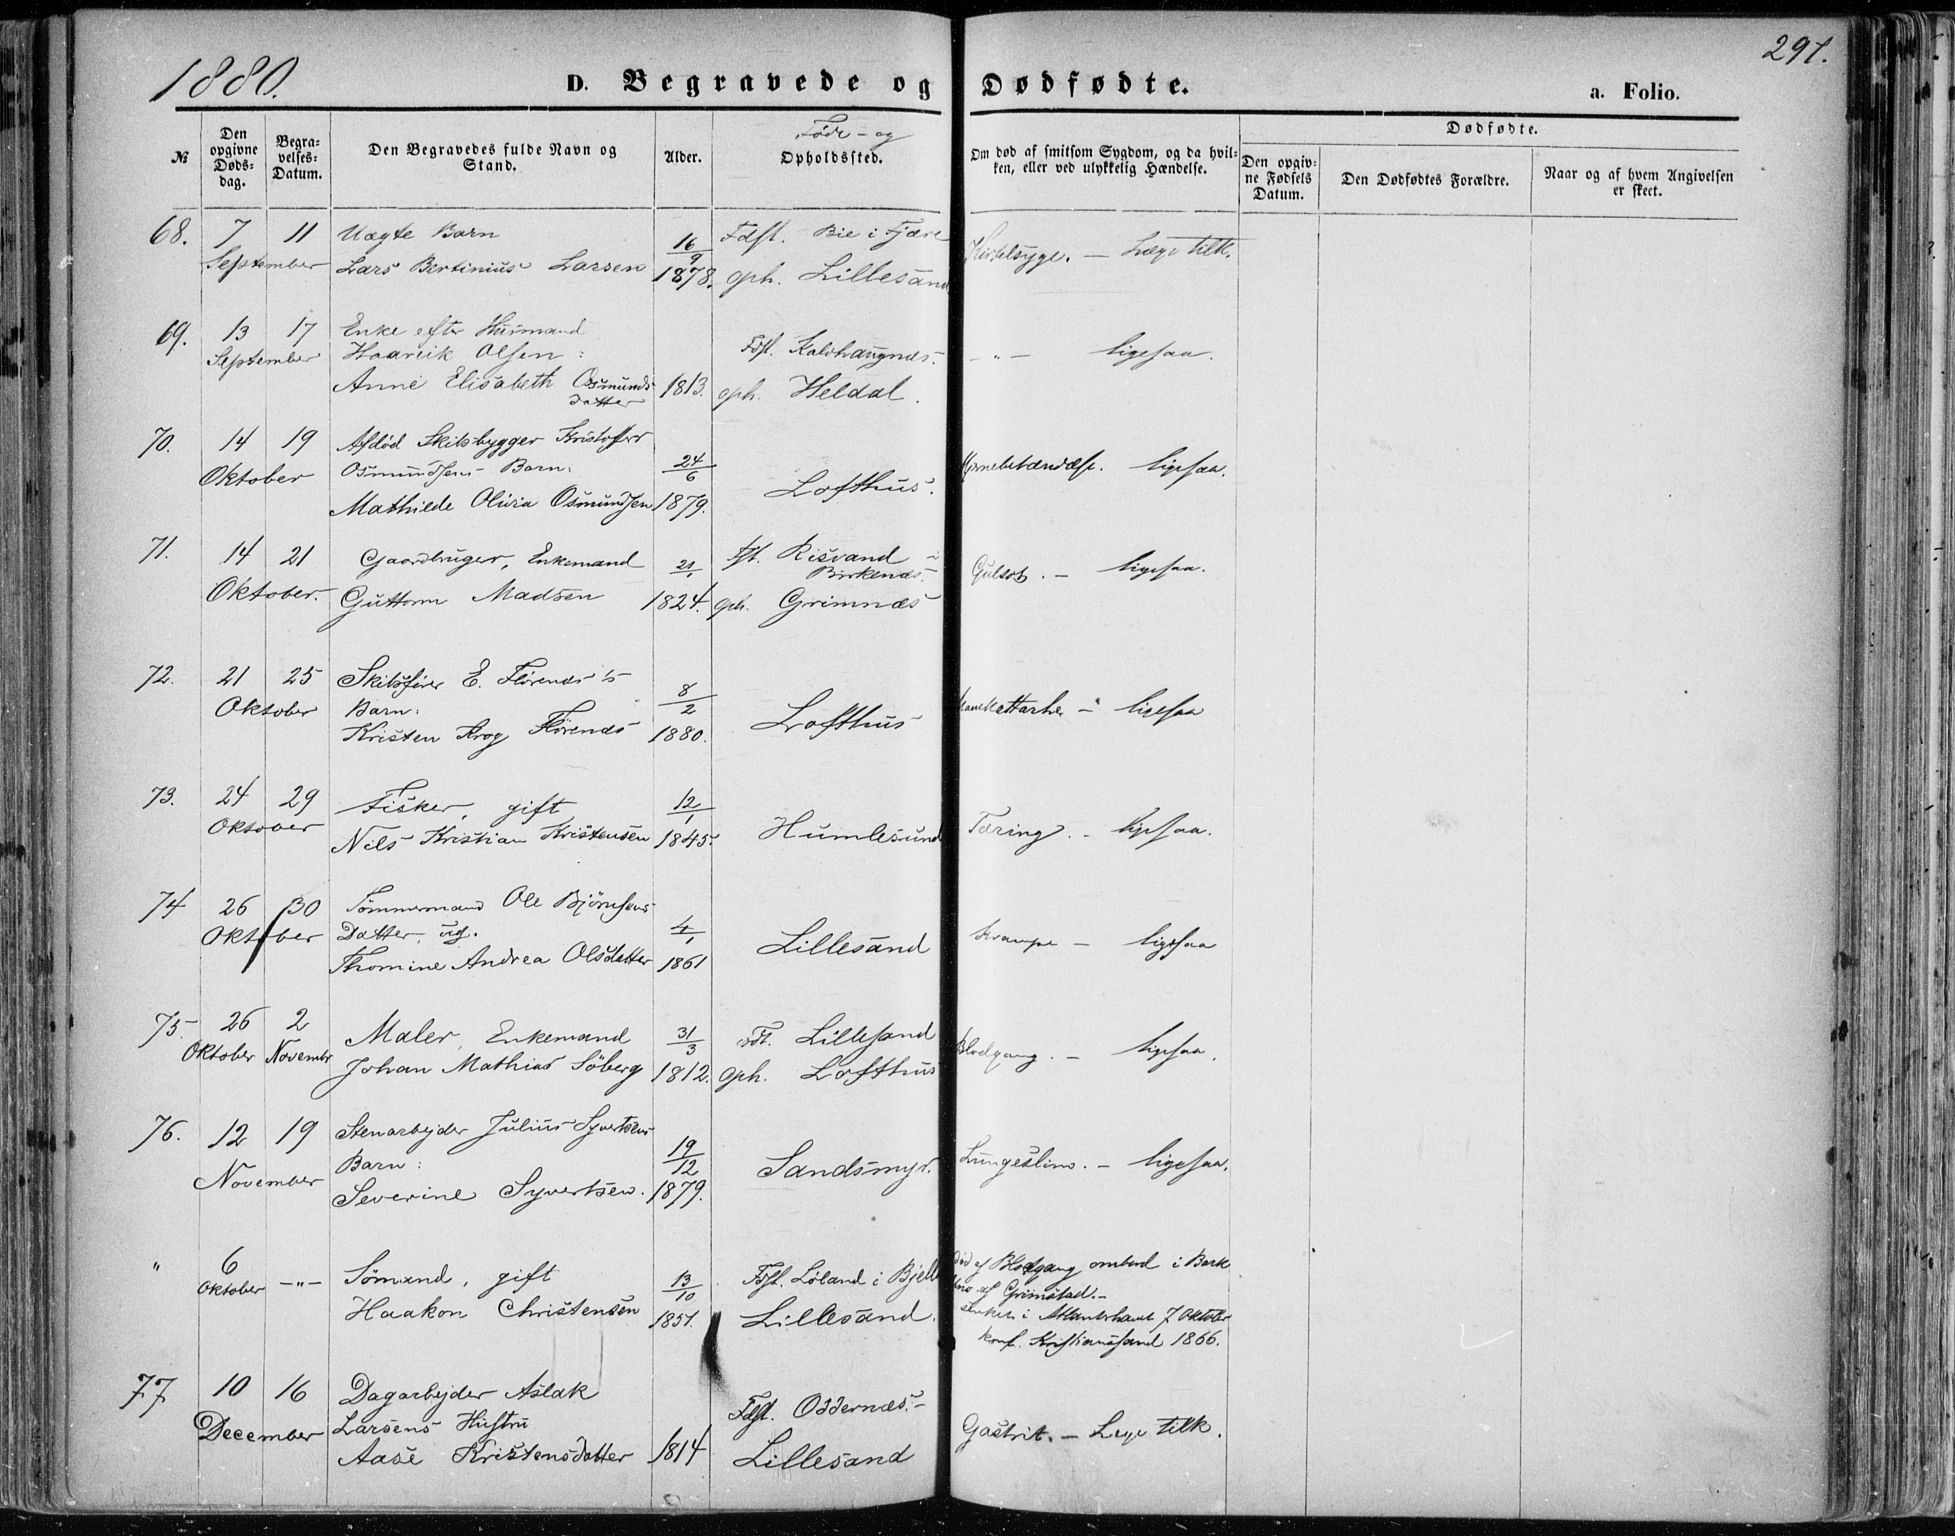 1880.
D. Begravede og Dødfødte.
a. Folio.
291.
№
Den opgivne Døds-dag.
Begra-velses-Datum.
Den Begravedes fulde Navn og Stand.
Alder.
Føde- og Opholdssted.
Om død af smitsom Sygdom, og da hvil-ken, eller ved ulykkelig Hændelse.
Dødfødte.
Den opgiv-ne Fødsels Datum.
Den Dødfødtes Forældre.
Naar og af hvem Angivelsen er skeet.
68. 7 11 Uægte Barn 16/9 Fdst. Bie i Fjære
September Lars Bertinius Larsen 1878. oph. Lillesand Kirtelsyge. – Læge tilk.
69. 13 17 Enke efter Husmand
September Haavcik Olsen: Fdst. – " – ligesaa.
Anne Elisabeth Osmunds datter 1813. oph. Heldal.
70. 14 19 Afdød Skibsbygger Kristoffer
Oktober Osmundsens Barn: 24/6 Hjernebetændelse. ligesaa.
Mathilde Olivia Osmundsen 1879. Lofthus.
71. 14 21 Gaardbruger, Enkemand 21/1 fst. Risvand i Birkenæs. Gulsot. – ligesaa.
Oktober. Guttorm Madsen 1824. oph. Grimnæs
72. 21 25 Skibsfører E. Flørenæs's
Oktober Barn: 8/2
Kristen Krog Flørenæs 1880. Lofthus – ligesaa
73. 24 29 Fisker, gift 12/1
Oktober Nils Kristian Kristensen 1845. Humlesund Tæring. – ligesaa.
74 26 30 Tømmermand Ole Bjørnsens
Oktober Datter, ug. 4/1
Thomine Andrea Olsdatter 1861 Lillesand Krampe – ligesaa
75 26 2 Maler, Enkemand 31/3 Fdt. Lillesand
Oktober November Johan Mathias Søberg 1812. oph. Lofthus Blodgang. – ligesaa.
76. 12 19 Stenarbejder Julius Syvertsens
November Barn: 19/12
Severine Syvertsen. 1879. Sandsmyr. Lungeslim. – ligesaa.
" 6 Oktober –"– Sømand, gift 13/10 Fdst. Løland i
Haakon Christensen 1851. Lillesand.
død af Blodgang ombord i Bark
af Grimstad. –
senket i Atlanterhavet 7 Oktober
konf. Kristianssand 1866.
77 10 16 Dagarbejder Aslak
December Larsens Hustru Fdst. Oddernæs. –
Aase Kristensdatter 1814 Lillesand Gastrit. – Læge tilk.